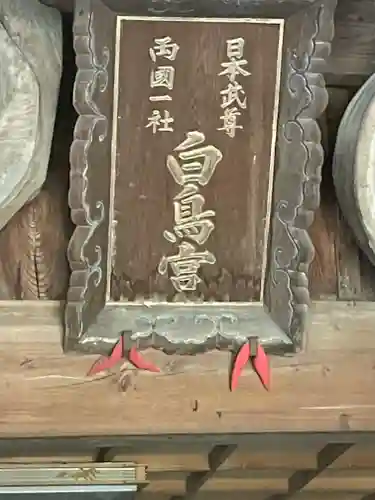 日本武尊
両国一社
白鳥宮